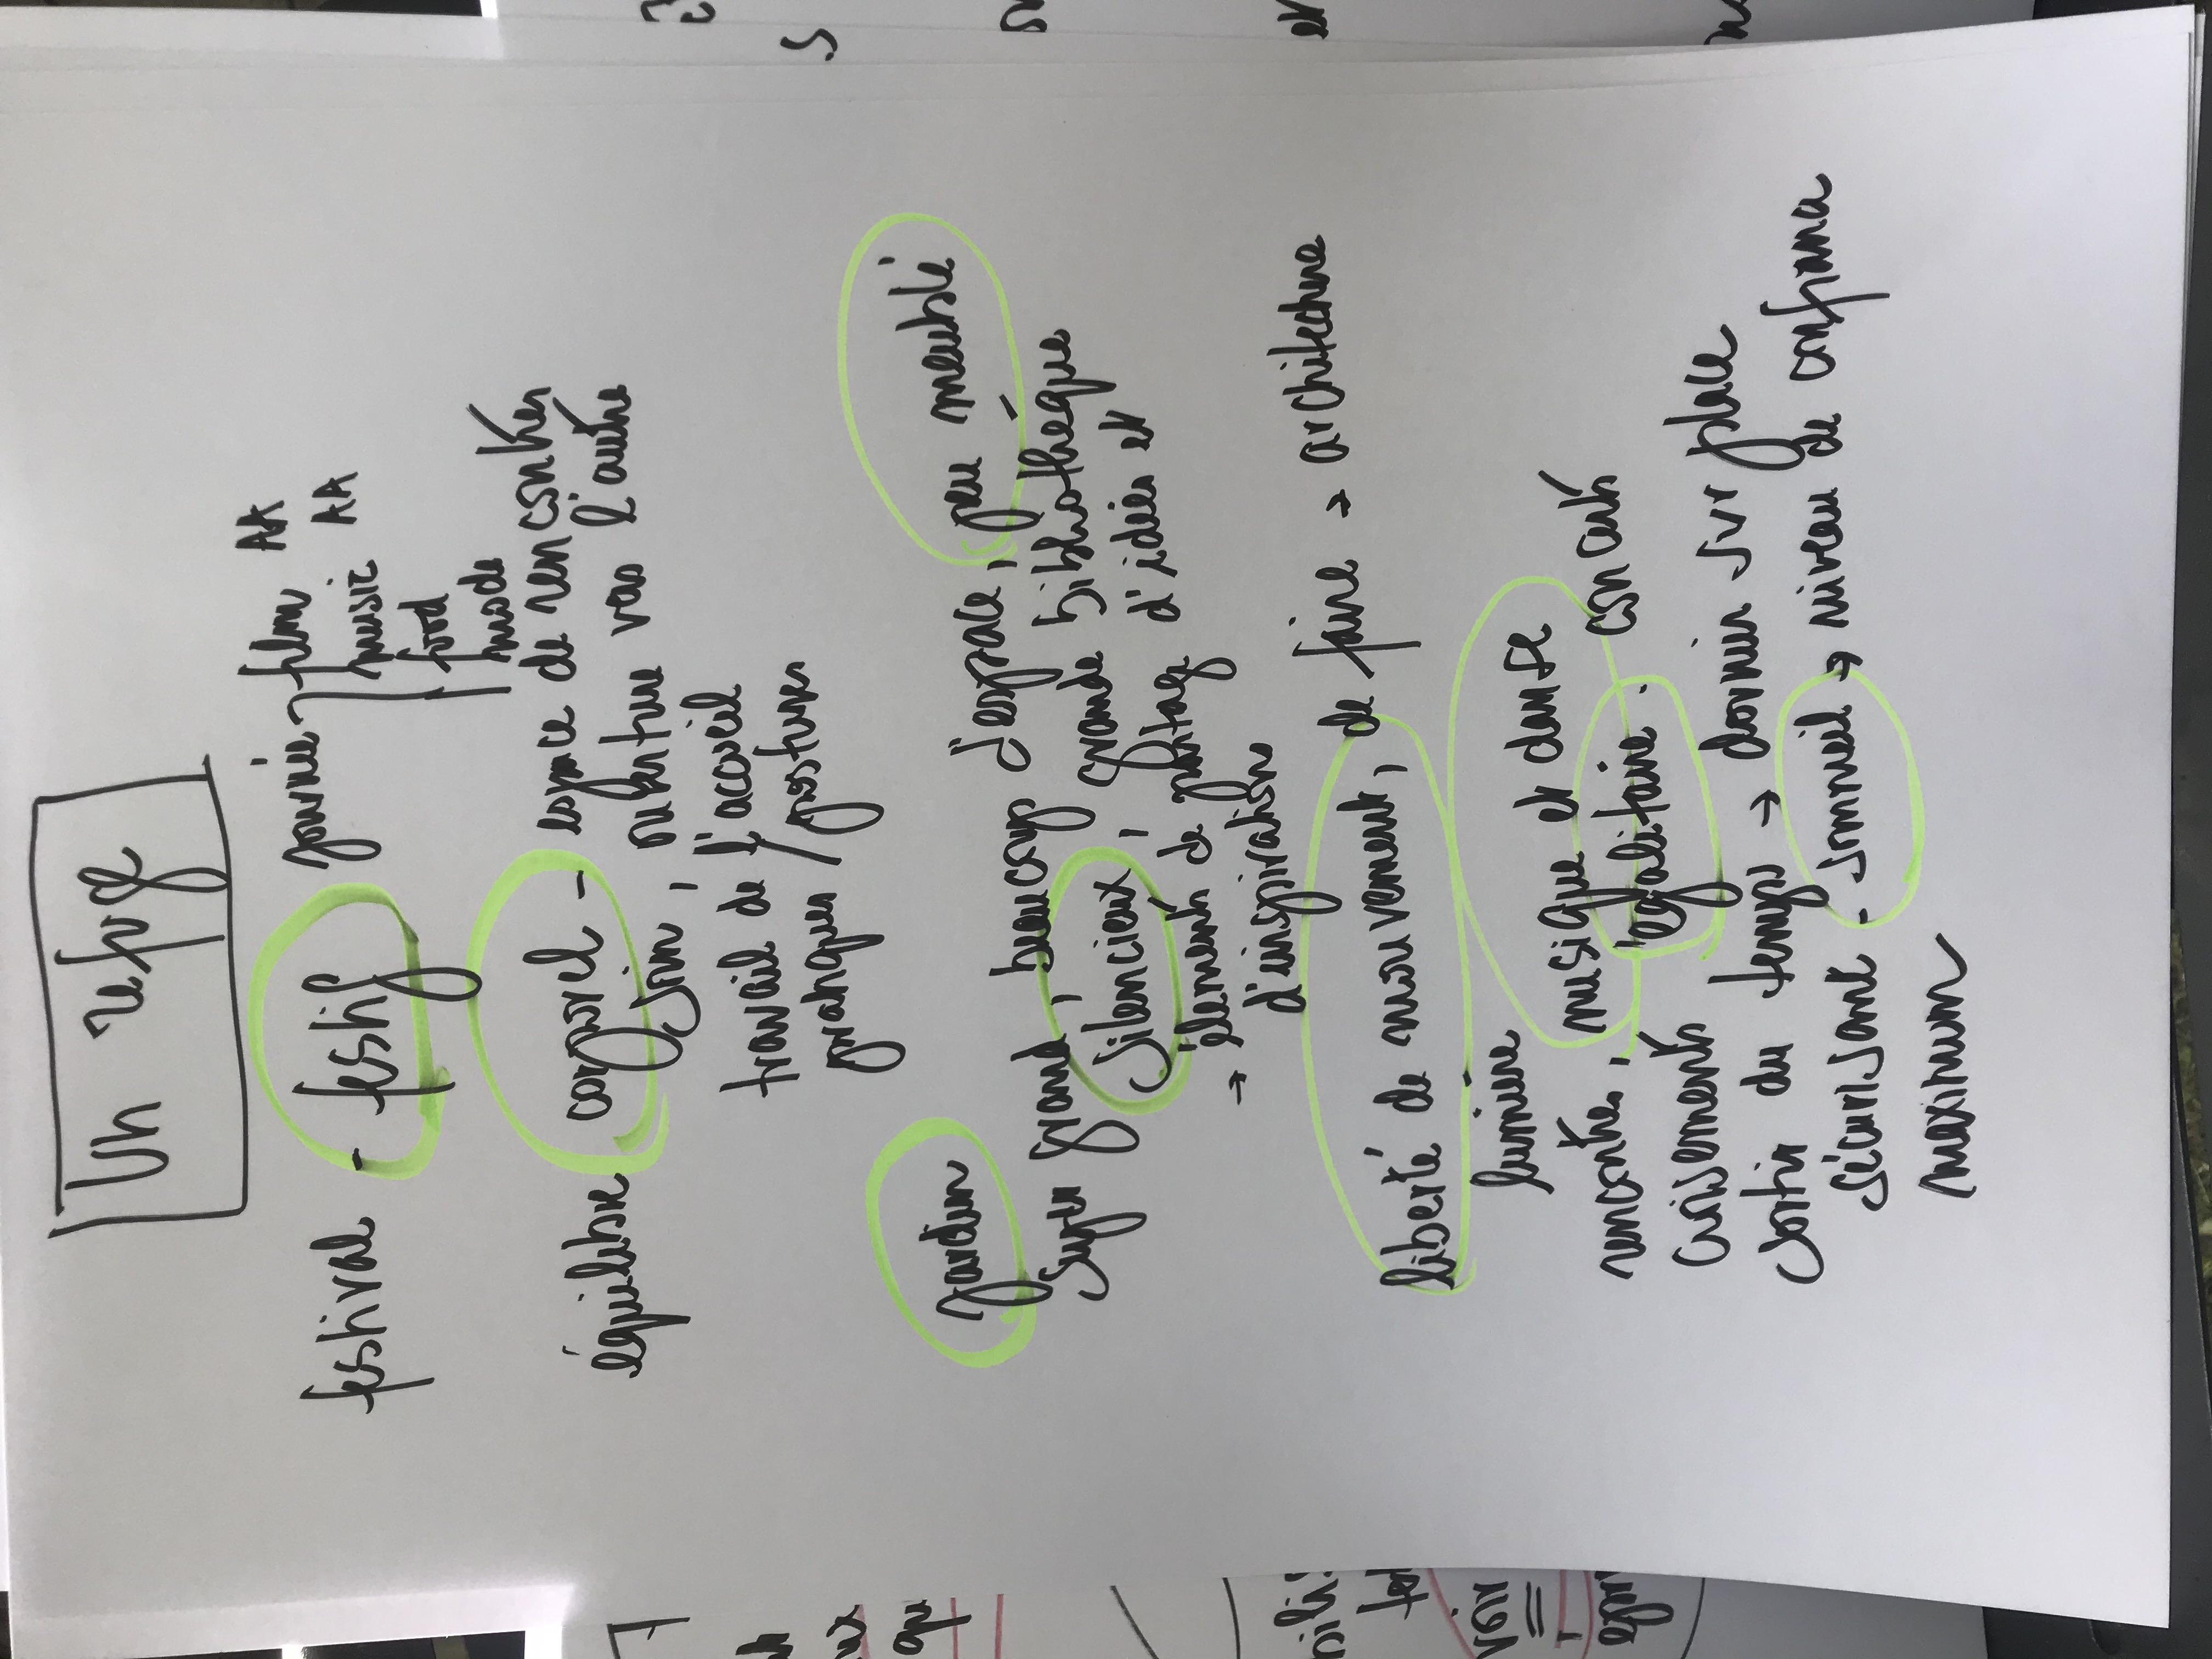 Un refuge
festival - festif journée film AA
music AA
food
mode
équilibre corporel - espace de rencontres
soin, ouverture vers l'autre
travail de l'accueil
pratiques / postures
jardin
super grand, beaucoup d'espace, peu meublé
silencieux, grande bibliothèque
→ élements de partage d'idées et
d'inspiration
liberté de mouvement, de faire → architecture
lumière
rencontre, musique et danse
égalitaire. concerts
croisements
sortir du temps → dormir sur place
sécurisant - sommeil → niveau de confiance
maximum